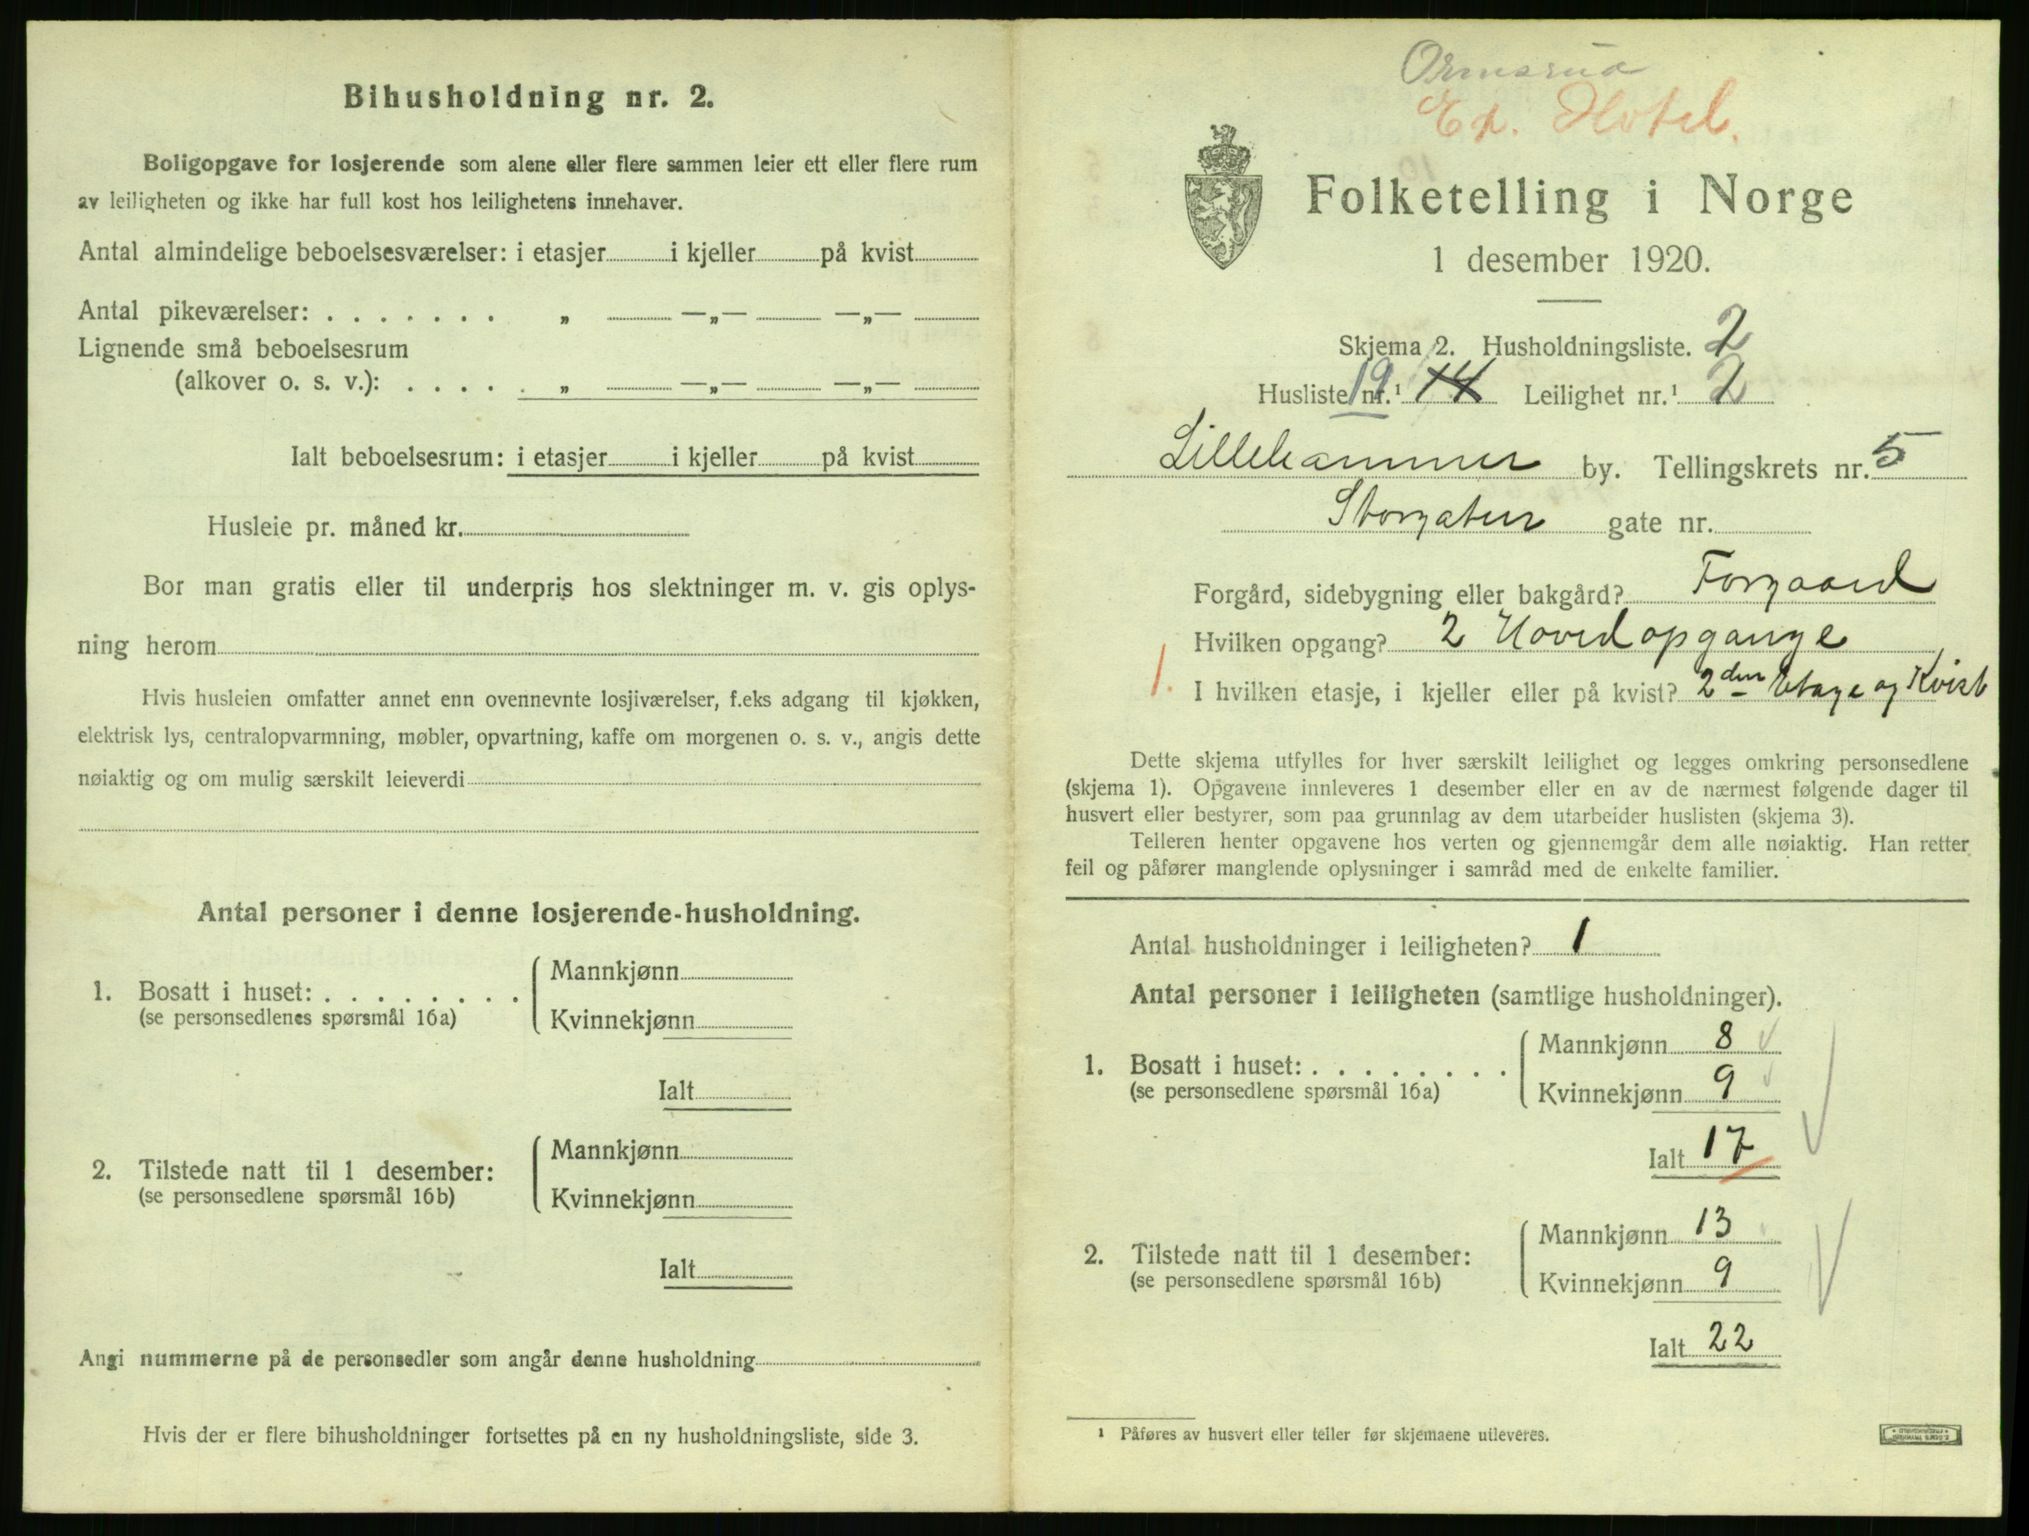 Bihusholdning nr. 2.
Boligopgave for losjerende som alene eller flere sammen leier ett eller flere rum
av leiligheten og ikke har full kost hos leilighetens innehaver.
Antal almindelige beboelsesværelser: i etasjer i kjeller på kvist
Antal pikeværelser: . . . . . . . „ —„— —„—
Lignende små beboelsesrum
(alkover o. s. v.): . . . . . „ —„— —„—
Ialt beboelsesrum: i etasjer i kjeller på kvist
Husleie pr. måned kr.
Bor man gratis eller til underpris hos slektninger m. v. gis oplys-
ning herom
Hvis husleien omfatter annet enn ovennevnte losjiværelser, f.eks adgang til kjøkken,
elektrisk lys, centralopvarmning, møbler, opvartning, kaffe om morgenen o. s. v., angis dette
nøiaktig og om mulig særskilt leieverdi
Antal personer i denne losjerende-husholdning.
Mannkjønn
1. Bosatt i huset: . . . . . . . .
(se personsedlenes spørsmål 16a)
Kvinnekjønn
Ialt
Mannkjønn
2. Tilstede natt til 1 desember:
(se personsedlene spørsmål 16b)
Kvinnekjønn
Ialt
Angi nummerne på de personsedler som angår denne husholdning
Hvis der er flere bihusholdninger fortsettes på en ny husholdningsliste, side 3.
Ormsrud
Hotel.
Folketelling i Norge
1 desember 1920.
Skjema 2. Husholdningsliste. 2
Husliste nr.¹ 19 14 Leilighet nr.¹ 2
Lillehammer by. Tellingskrets nr. 5
Storgaten gate nr.
Forgård, sidebygning eller bakgård? Forgaard
Hvilken opgang? 2 Hovedopgange
1. I hvilken etasje, i kjeller eller på kvist? 2den Etage og Kvist
Dette skjema utfylles for hver særskilt leilighet og legges omkring personsedlene
(skjema 1). Opgavene innleveres 1 desember eller en av de nærmest følgende dager til
husvert eller bestyrer, som paa grunnlag av dem utarbeider huslisten (skjema 3).
Telleren henter opgavene hos verten og gjennemgår dem alle nøiaktig. Han retter
feil og påfører manglende oplysninger i samråd med de enkelte familier.
Antal husholdninger i leiligheten? 1
Antal personer i leiligheten (samtlige husholdninger).
Mannkjønn 8
1. Bosatt i huset: . . . . . . . .
(se personsedlene spørsmål 16a)
Kvinnekjønn 9
Ialt 17
Mannkjønn 13
2. Tilstede natt til 1 desember:
(se personsedlene spørsmål 16b)
Kvinnekjønn 9
Ialt 22
¹ Påføres av husvert eller teller før skjemaene utleveres.